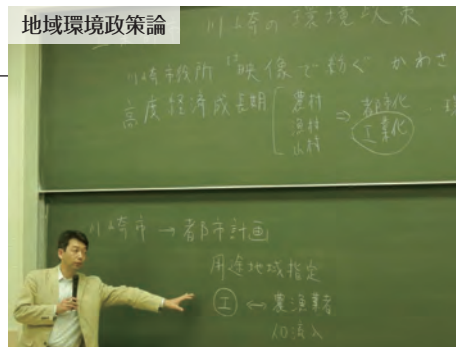 地域環境政策論
川崎の環境政策
川崎市役所 "映像で紡ぐ かわさ
高度経済成長期
農村
漁村
山村
⇒ 都市化
工業化
川崎市 → 都市計画
用途地域指定
工 ↔ 農漁業者
人口流入